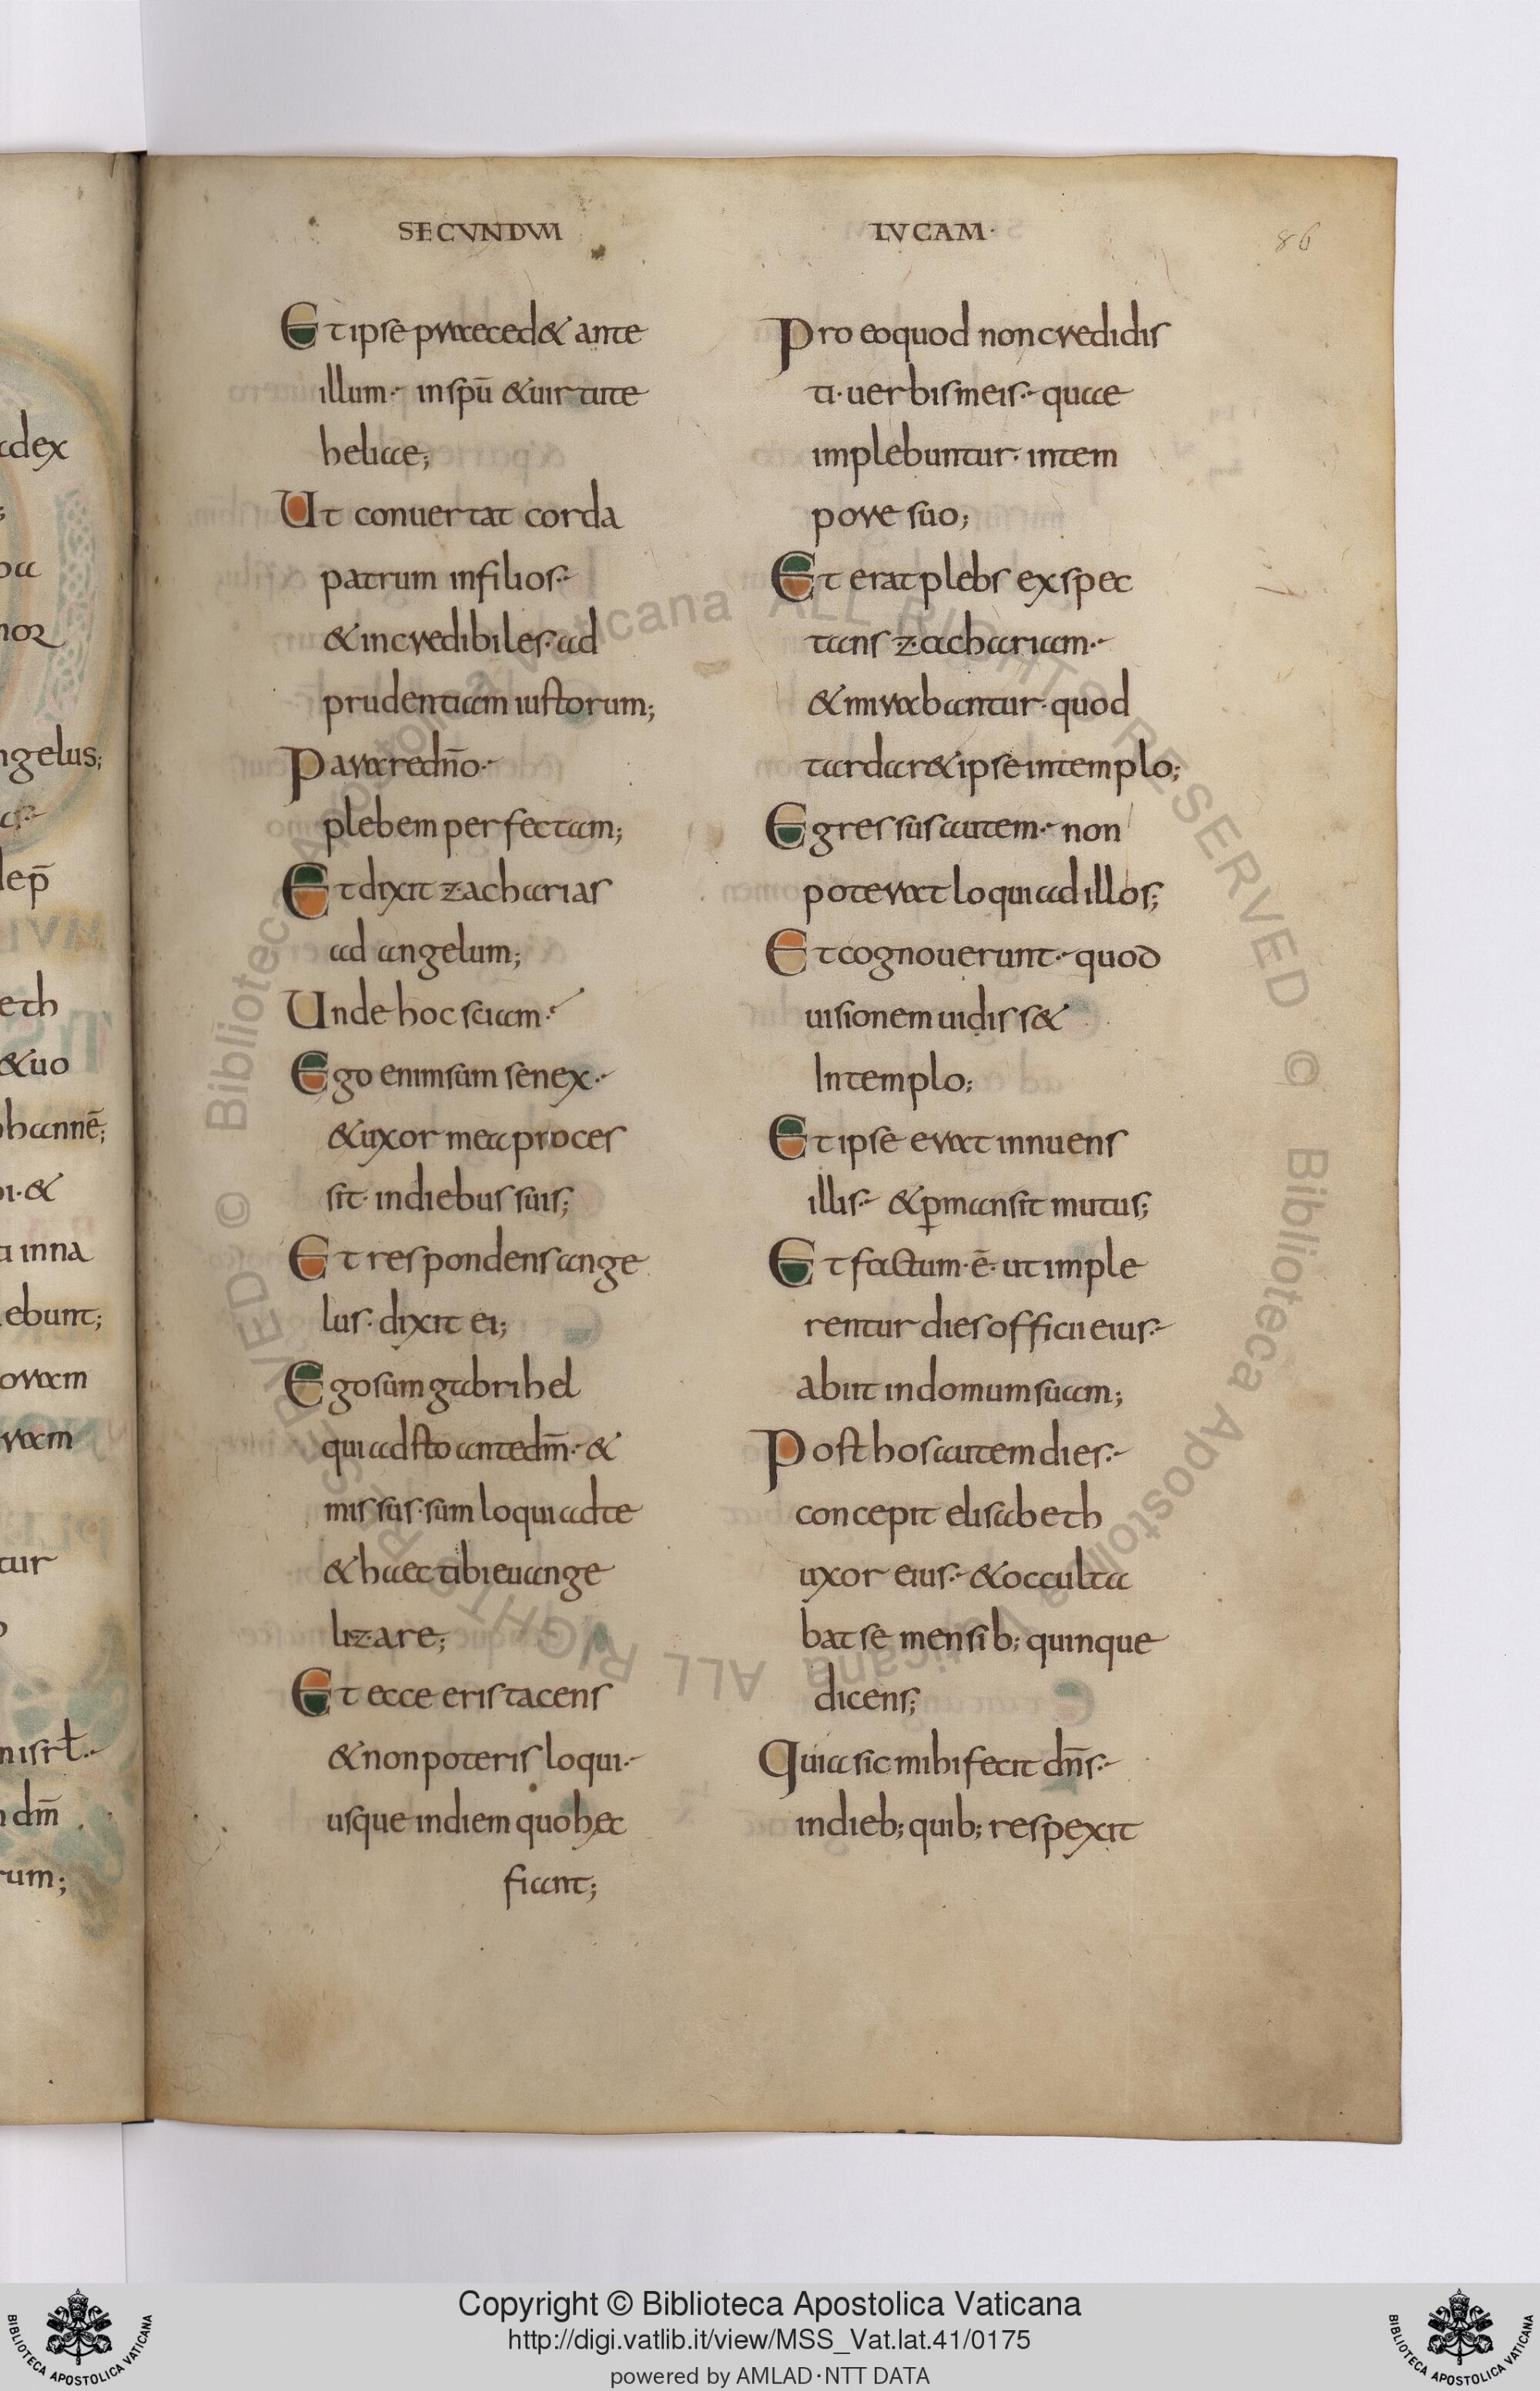 SECVNDVM
Et ipse praeced& ante
illum· in spū & uirtute
heliae;
Ut conuertat corda
patrum in filios·
& incredibiles· ad
prudentiam iustorum;
Parare dn̄o·
plebem perfectam;
Et dixit zacharias
ad angelum;
Unde hoc sciam·
Ego enim sum senex·
& uxor mea proces
sit· in diebus suis;
Et respondens ange
lus· dixit ei;
Ego sum gabrihel
qui adsto ante dm̄· &
missus· sum loqui ad te
& haec tibi euange
lizare;
Et ecce eris tacens
& non poteris loqui·
usque in diem quo hęc
fiant;
LVCAM·
86
Pro eo quod non credidis
ti· uerbis meis· quae
implebuntur· in tem
pore suo;
Et erat plebs exspec
tans zachariam·
& mirabantur· quod
tardar& ipse in templo;
Egressus autem· non
poterat loqui ad illos;
Et cognouerunt· quod
uisionem uidiss&
In templo;
Et ipse erat innuens
illis· & ꝑmansit mutus;
Et factum· ē· ut imple
rentur dies officii eius·
abiit in domum suam;
Post hos autem dies·
concepit elisabeth
uxor eius· & occulta
bat se mensib; quinque
dicens;
Quia sic mihi fecit dn̄s·
in dieb; quib; respexit
adex
angelus;
eth
&uo
ohannē;
inna
ebunt;
dm̄
rum;
© Biblioteca Apostolica Vaticana ALL RIGHTS RESERVED
© Biblioteca Apostolica Vaticana ALL RIGHTS RESERVED
BIBLIOTECA APOSTOLICA VATICANA
Copyright © Biblioteca Apostolica Vaticana
http://digi.vatlib.it/view/MSS_Vat.lat.41/0175
powered by AMLAD·NTT DATA
BIBLIOTECA APOSTOLICA VATICANA